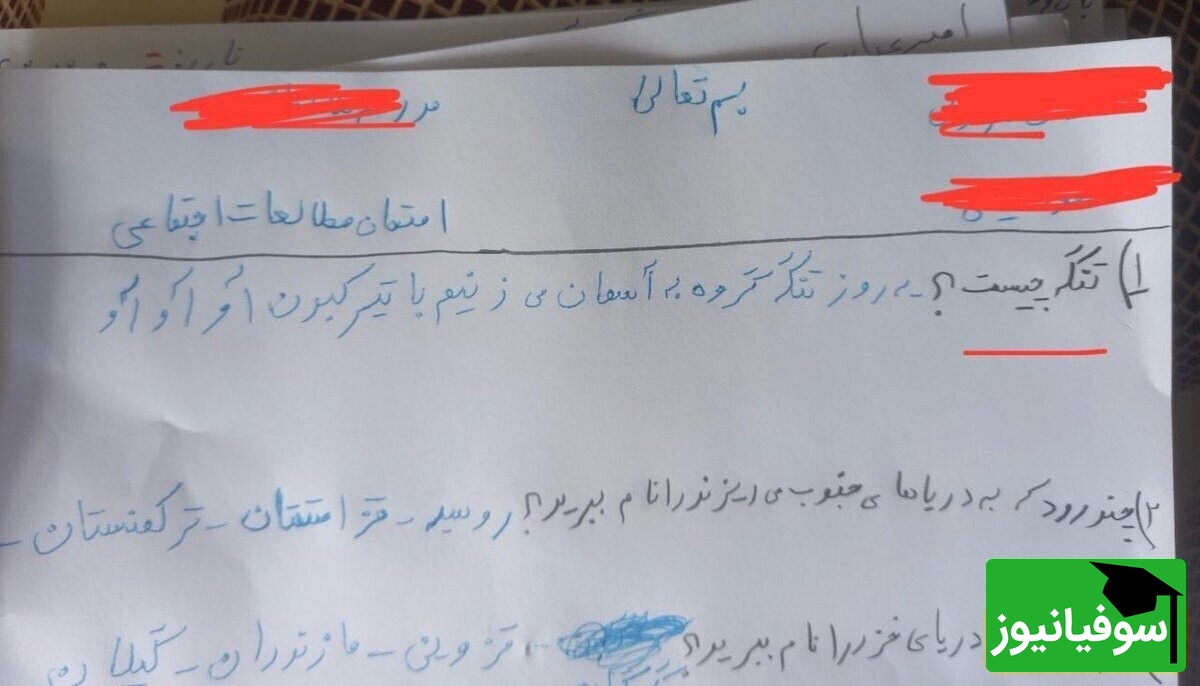 امیرعباس
تاریخ
بسم تعالی
امتحان مطالعات اجتماعی
۱) تگرگ چیست؟ یه روز تگرگ گروه به آسمان می زنیم با تیر کبون اؤ اؤ اؤ
۲) چند رود که به دریاها ی جنوب می ریزند را نام ببرید؟ روسیه - قزاقستان - ترکمنستان -
دریای خزر را نام ببرید؟ قزوین - مازندران - گیلان
سوفیانیوز